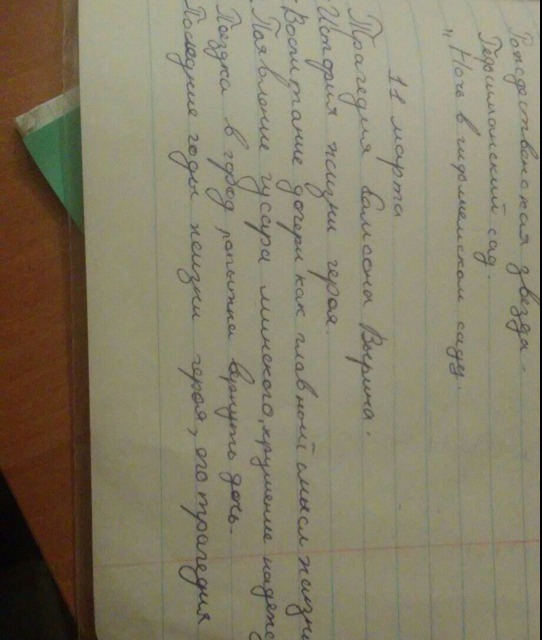 Рождественская звезда.
Гефсиманский сад.
„Ночь в гефсиманском саду.
11 марта
Трагедия Самсона Вырина.
-История жизни героя
-Воспитание дочери как главный смысл жизни
-Появление гусара минского, крушение надежд
Поездка в город, попытка вернуть дочь.
Последние годы жизни героя, его трагедия